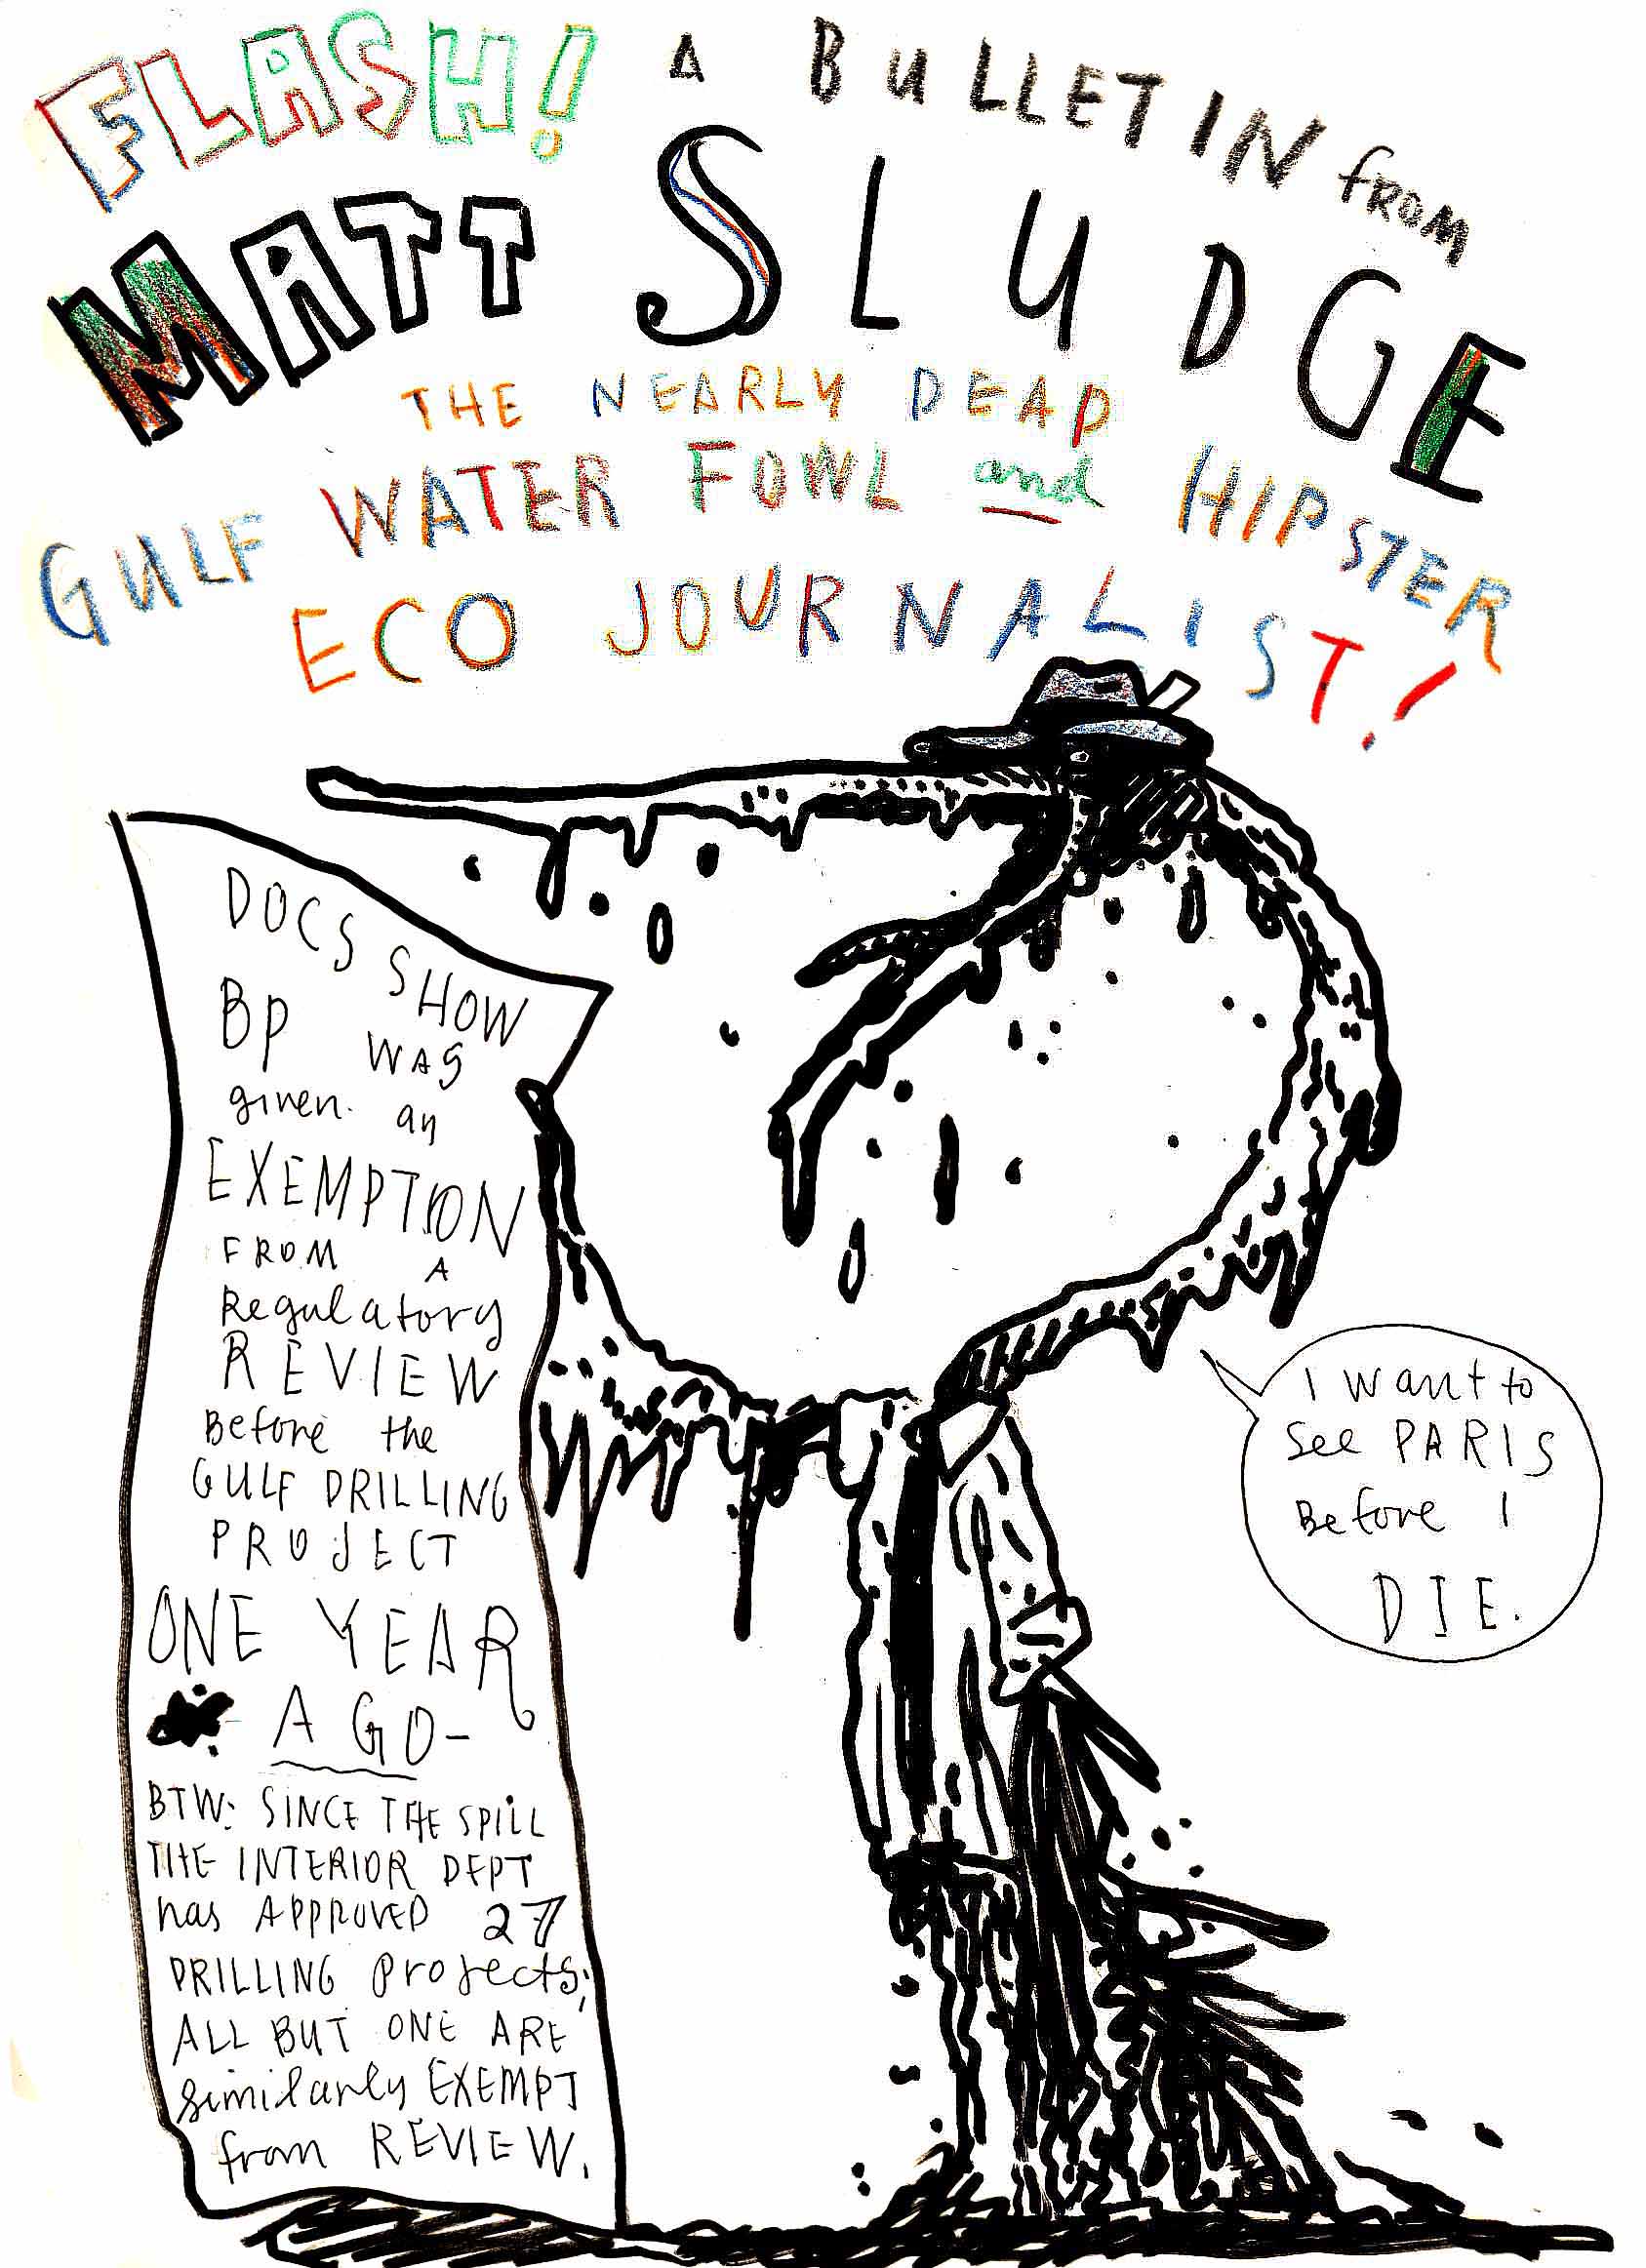 FLASH! A BULLETIN from
MATT SLUDGE
THE NEARLY DEAD
GULF WATER FOWL and HIPSTER
ECO JOURNALIST!
DOCS SHOW
BP WAS
given an
EXEMPTION
FROM A
Regulatory
REVIEW
Before the
GULF DRILLING
PROJECT
ONE YEAR
AGO-
BTW: SINCE THE SPILL
THE INTERIOR DEPT
has APPROVED 27
DRILLING Projects;
ALL BUT ONE ARE
similarly EXEMPT
from REVIEW.
I want to
See PARIS
Before I
DIE.